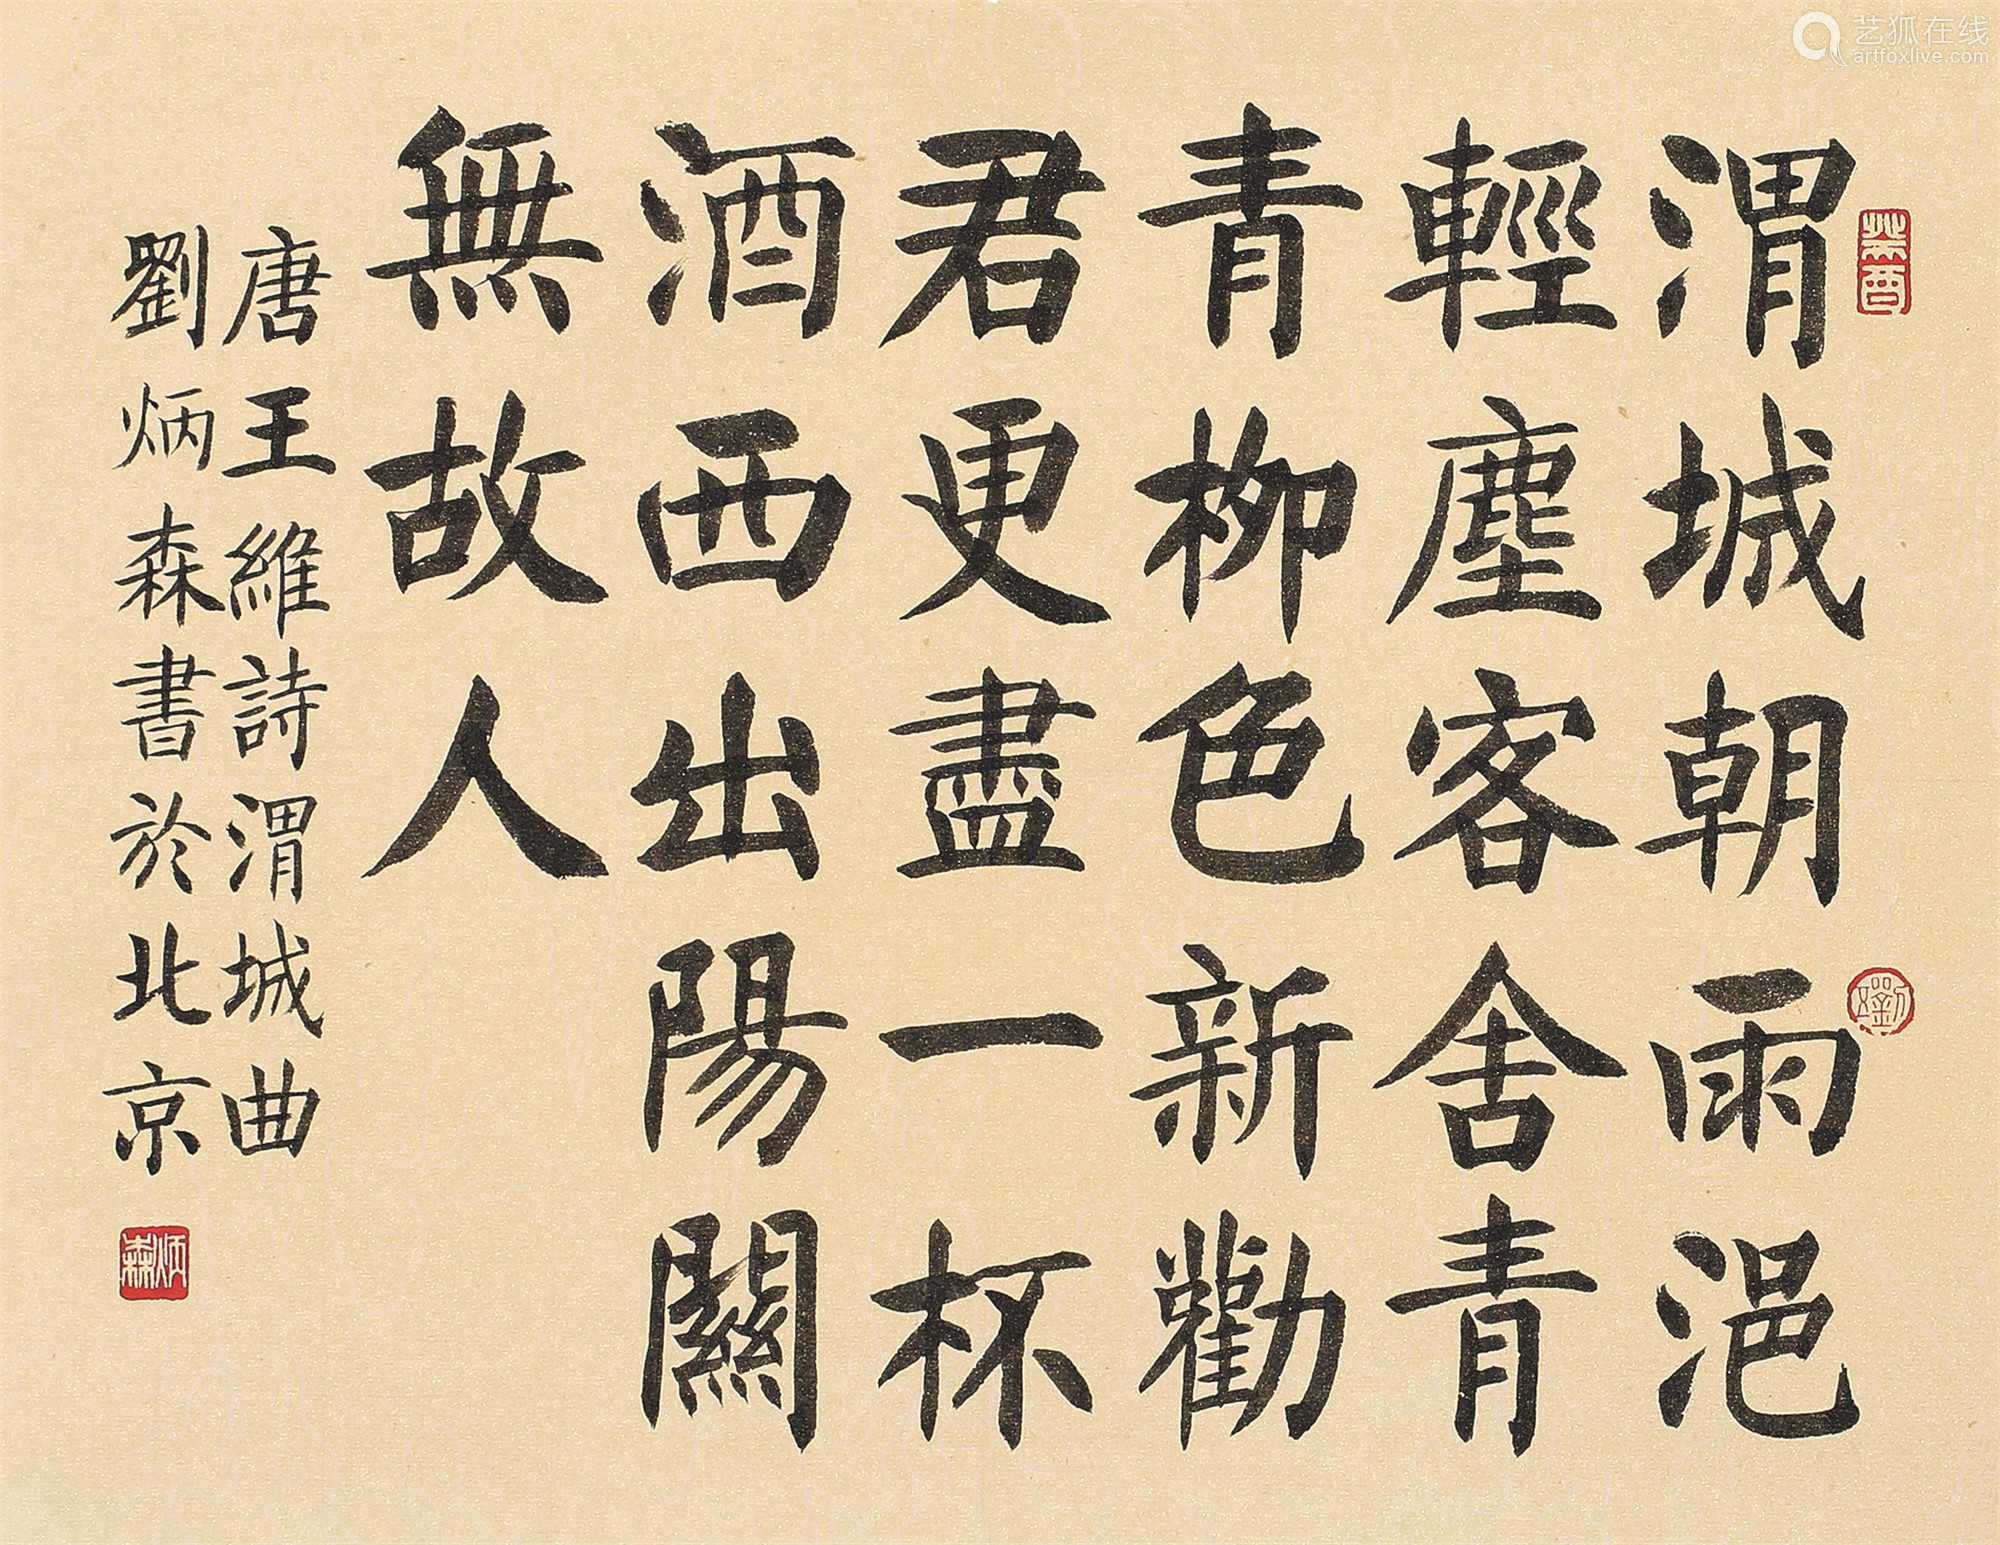 渭城朝雨浥
輕塵客舍青
青柳色新勸
君更盡一杯
酒西出陽關
無故人
唐王維詩渭城曲
劉炳森書於北京
炳森
艺狐在线
artfoxlive.com